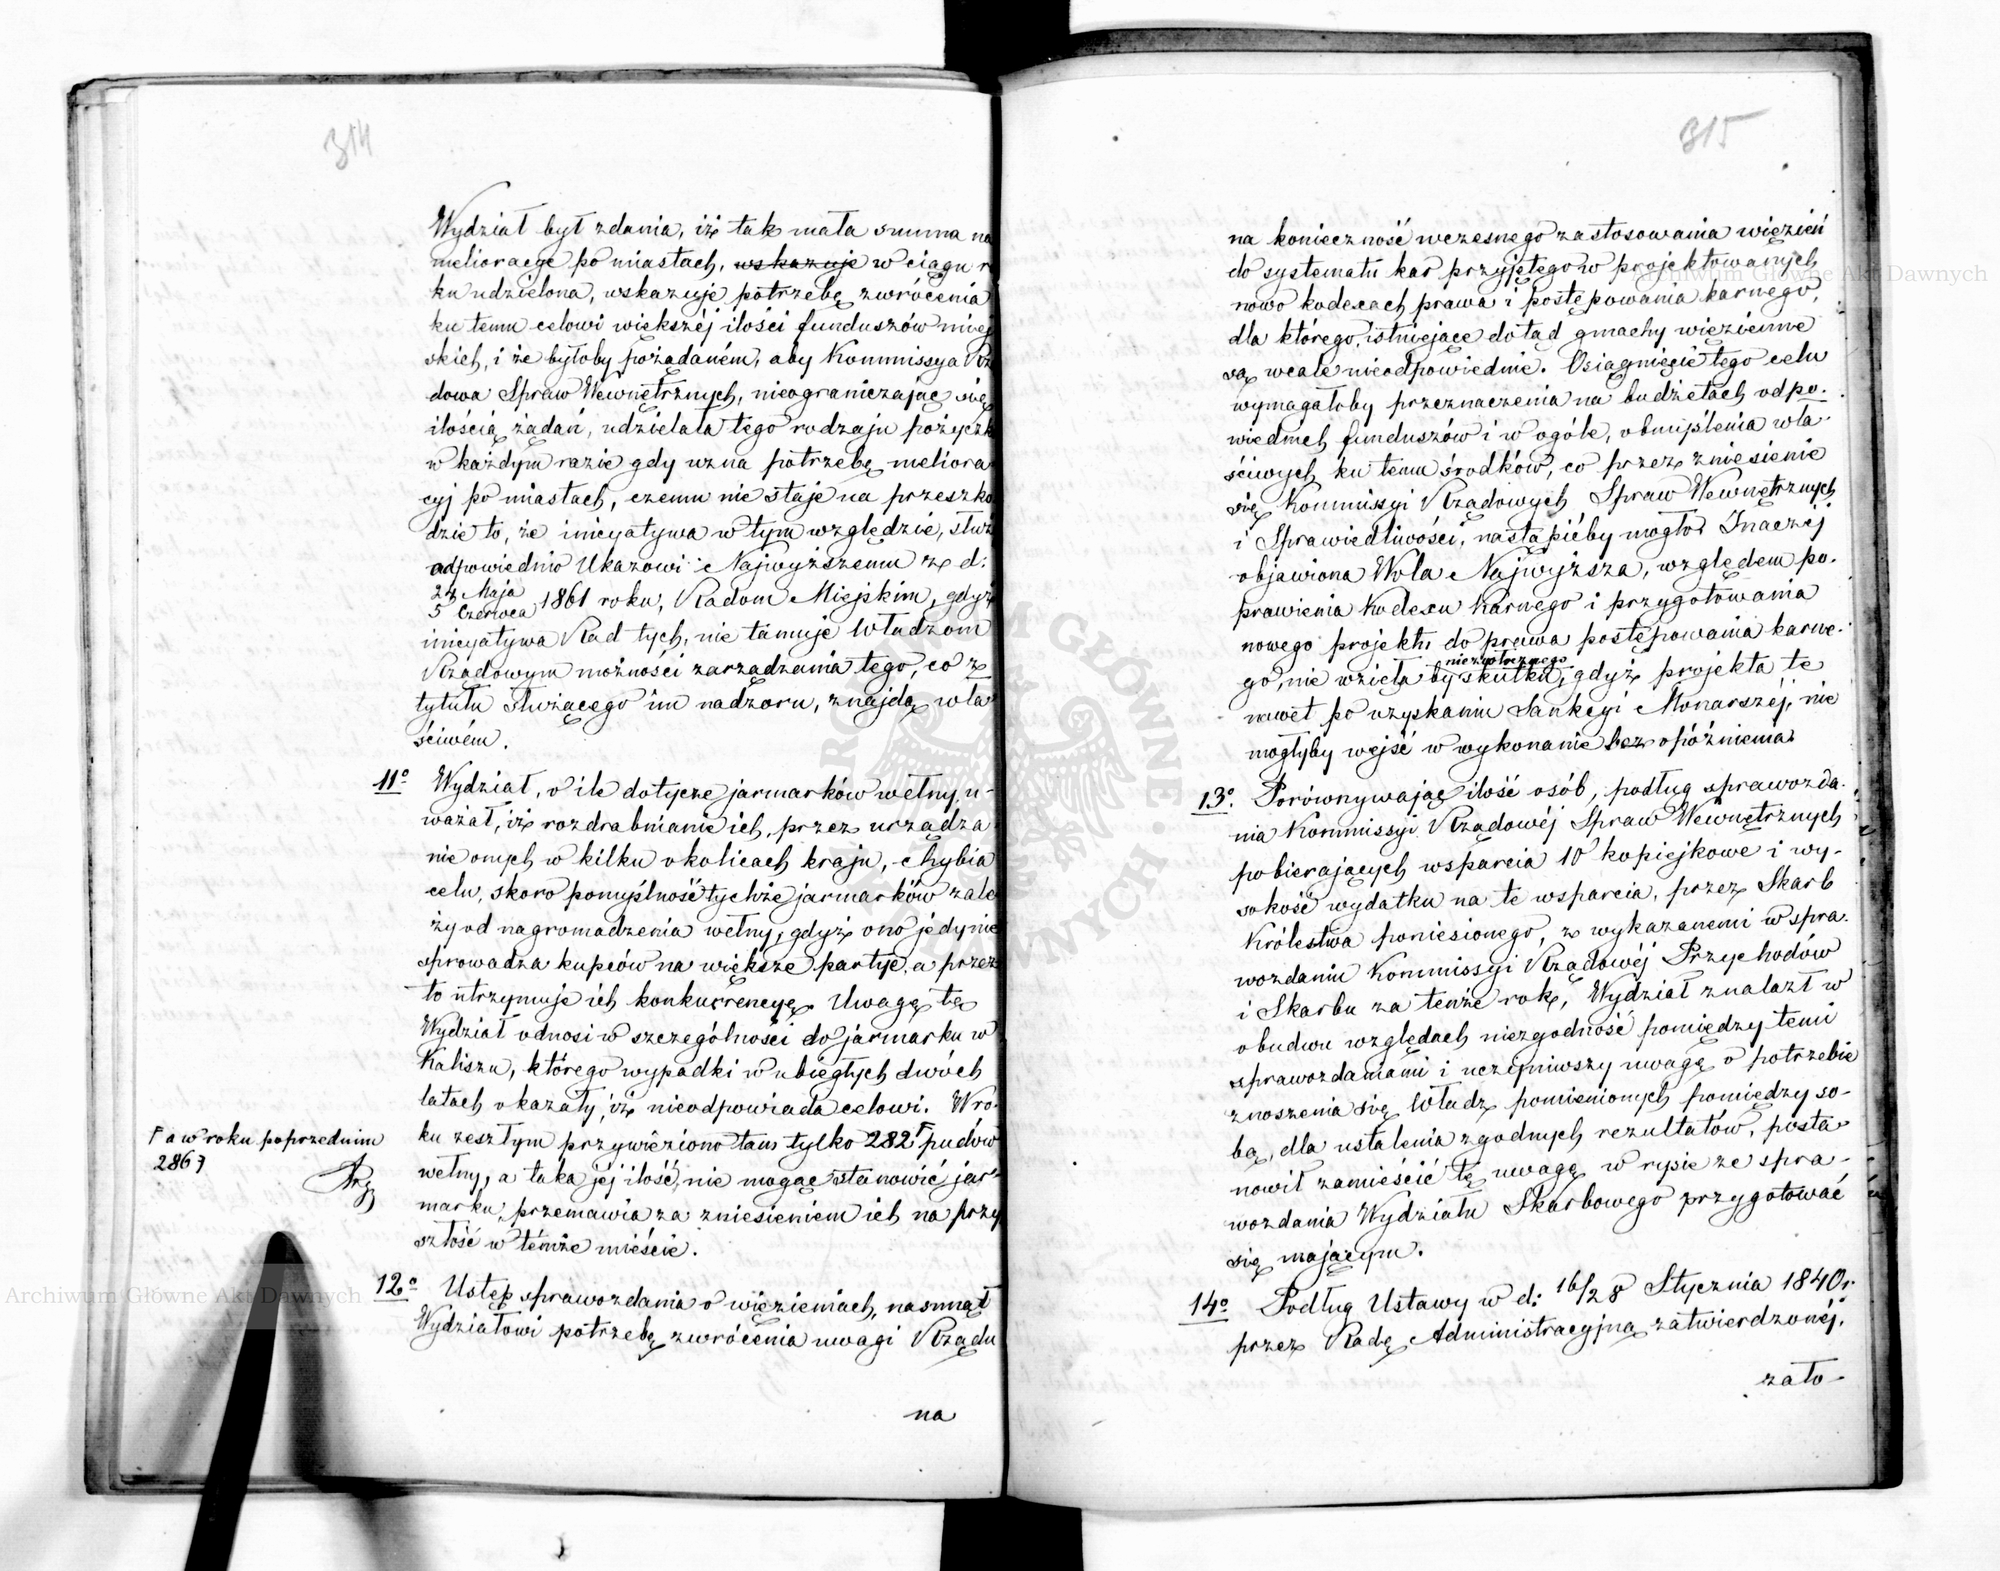 314
Wydział był zdania, iż tak mała summa na
melioracye po miastach, wskazuje w ciągu r
ku udzielona, wskazuje potrzebę zwrócenia
ku temu celowi większéj ilości funduszów miej
skich, i że byłoby pożądaném, aby Kommissya Rzą
dowa Spraw Wewnętrznych, nieograniczając się
ilością żądań, udzielała tego rodzaju pożyczk
w każdym razie gdy uzna potrzebę meliora
cyj po miastach, czemu nie staje na przeszko
dzie to, że inicyatywa w tym względzie, służ
odpowiednio Ukazowi Najwyższemu z d:
24 Maja
5 Czerwca 1861 roku, Radom Miejskim, gdyż
inicyatywa Rad tych, nie tamuje Władzom
Rządowym możności zarządzania tego, co z
tytułu służącego im nadzoru, znajdą wła
ściwém.
11° Wydział, o ile dotycze jarmarków wełny, u-
ważał, iż rozdrabnianie ich, przez urządza
nie onych w kilku okolicach kraju, chybia
celu, skoro pomyślność tychże jarmarków zale
ży od nagromadzenia wełny, gdyż ono jedynie
sprowadza kupców na większe partye, a przez
to utrzymuje ich konkurrencyę. Uwagę tę
Wydział odnosi w szczególności do jarmarku w
Kaliszu, którego wypadki w ubiegłych dwóch
latach okazały, iż nieodpowiada celowi. W ro-
ku zeszłym przywieziono tam tylko 282 ⌈ pudów
wełny, a taka jéj ilość, nie mogąc stanowić jar-
marku, przemawia za zniesieniem ich na przy
szłość w témże mieście.
⌈ a w roku poprzednim
2867
12° Ustęp sprawozdania o więzieniach, nasunął
Wydziałowi potrzebę zwrócenia uwagi Rządu
na
315
na konieczność wczesnego zastosowania więzień
do systematu kar przyjętego w projektowanych
nowo kodexach prawa i postępowania karnego,
dla którego, istniejące dotąd gmachy więzienne
są wcale nieodpowiednie. Osiągnięcie tego celu
wymagałoby przeznaczenia na budżetach odpo-
wiednich funduszów i w ogóle, obmyślenia wła-
ściwych ku temu środków, co przez zniesienie
się Kommissyi Rządowych Spraw Wewnętrznych
i Sprawiedliwości, nastąpićby mogło. Inaczéj
objawiona Wola Najwyższa, względem po-
prawienia Kodexu Karnego i przygotowania
nowego projektu do prawa postępowania karne-
niezwłocznego
go, nie wzięła by skutku, gdyż projekta te
nawet po uzyskaniu Sankcyi Monarszéj, nie
mogłyby wejść w wykonanie bez opóźnienia.
13° Porównywając ilość osób, podług sprawozda-
nia Kommissyi Rządowéj Spraw Wewnętrznych
pobierających wsparcia 10 kopiejkowe i wy-
sokość wydatku na te wsparcia, przez Skarb
Królestwa poniesionego, z wykazanemi w spra-
wozdaniu Kommissyi Rządowéj Przychodów
i Skarbu za tenże rok, Wydział znalazł w
obudwu względach niezgodność pomiędzy temi
sprawozdaniami i uczyniwszy uwagę o potrzebie
znoszenia się Władz pomienionych pomiędzy so-
bą, dla ustalenia zgodnych rezultatów, posta-
nowił zamieścić tę uwagę w rysie ze spra-
wozdania Wydziału Skarbowego przygotować
się mającym.
14° Podług Ustawy w d: 16/28 Stycznia 1840 r.
przez Radę Administracyjną zatwierdzonéj,
zało-
Archiwum Główne Akt Dawnych
Archiwum Główne Akt Dawnych